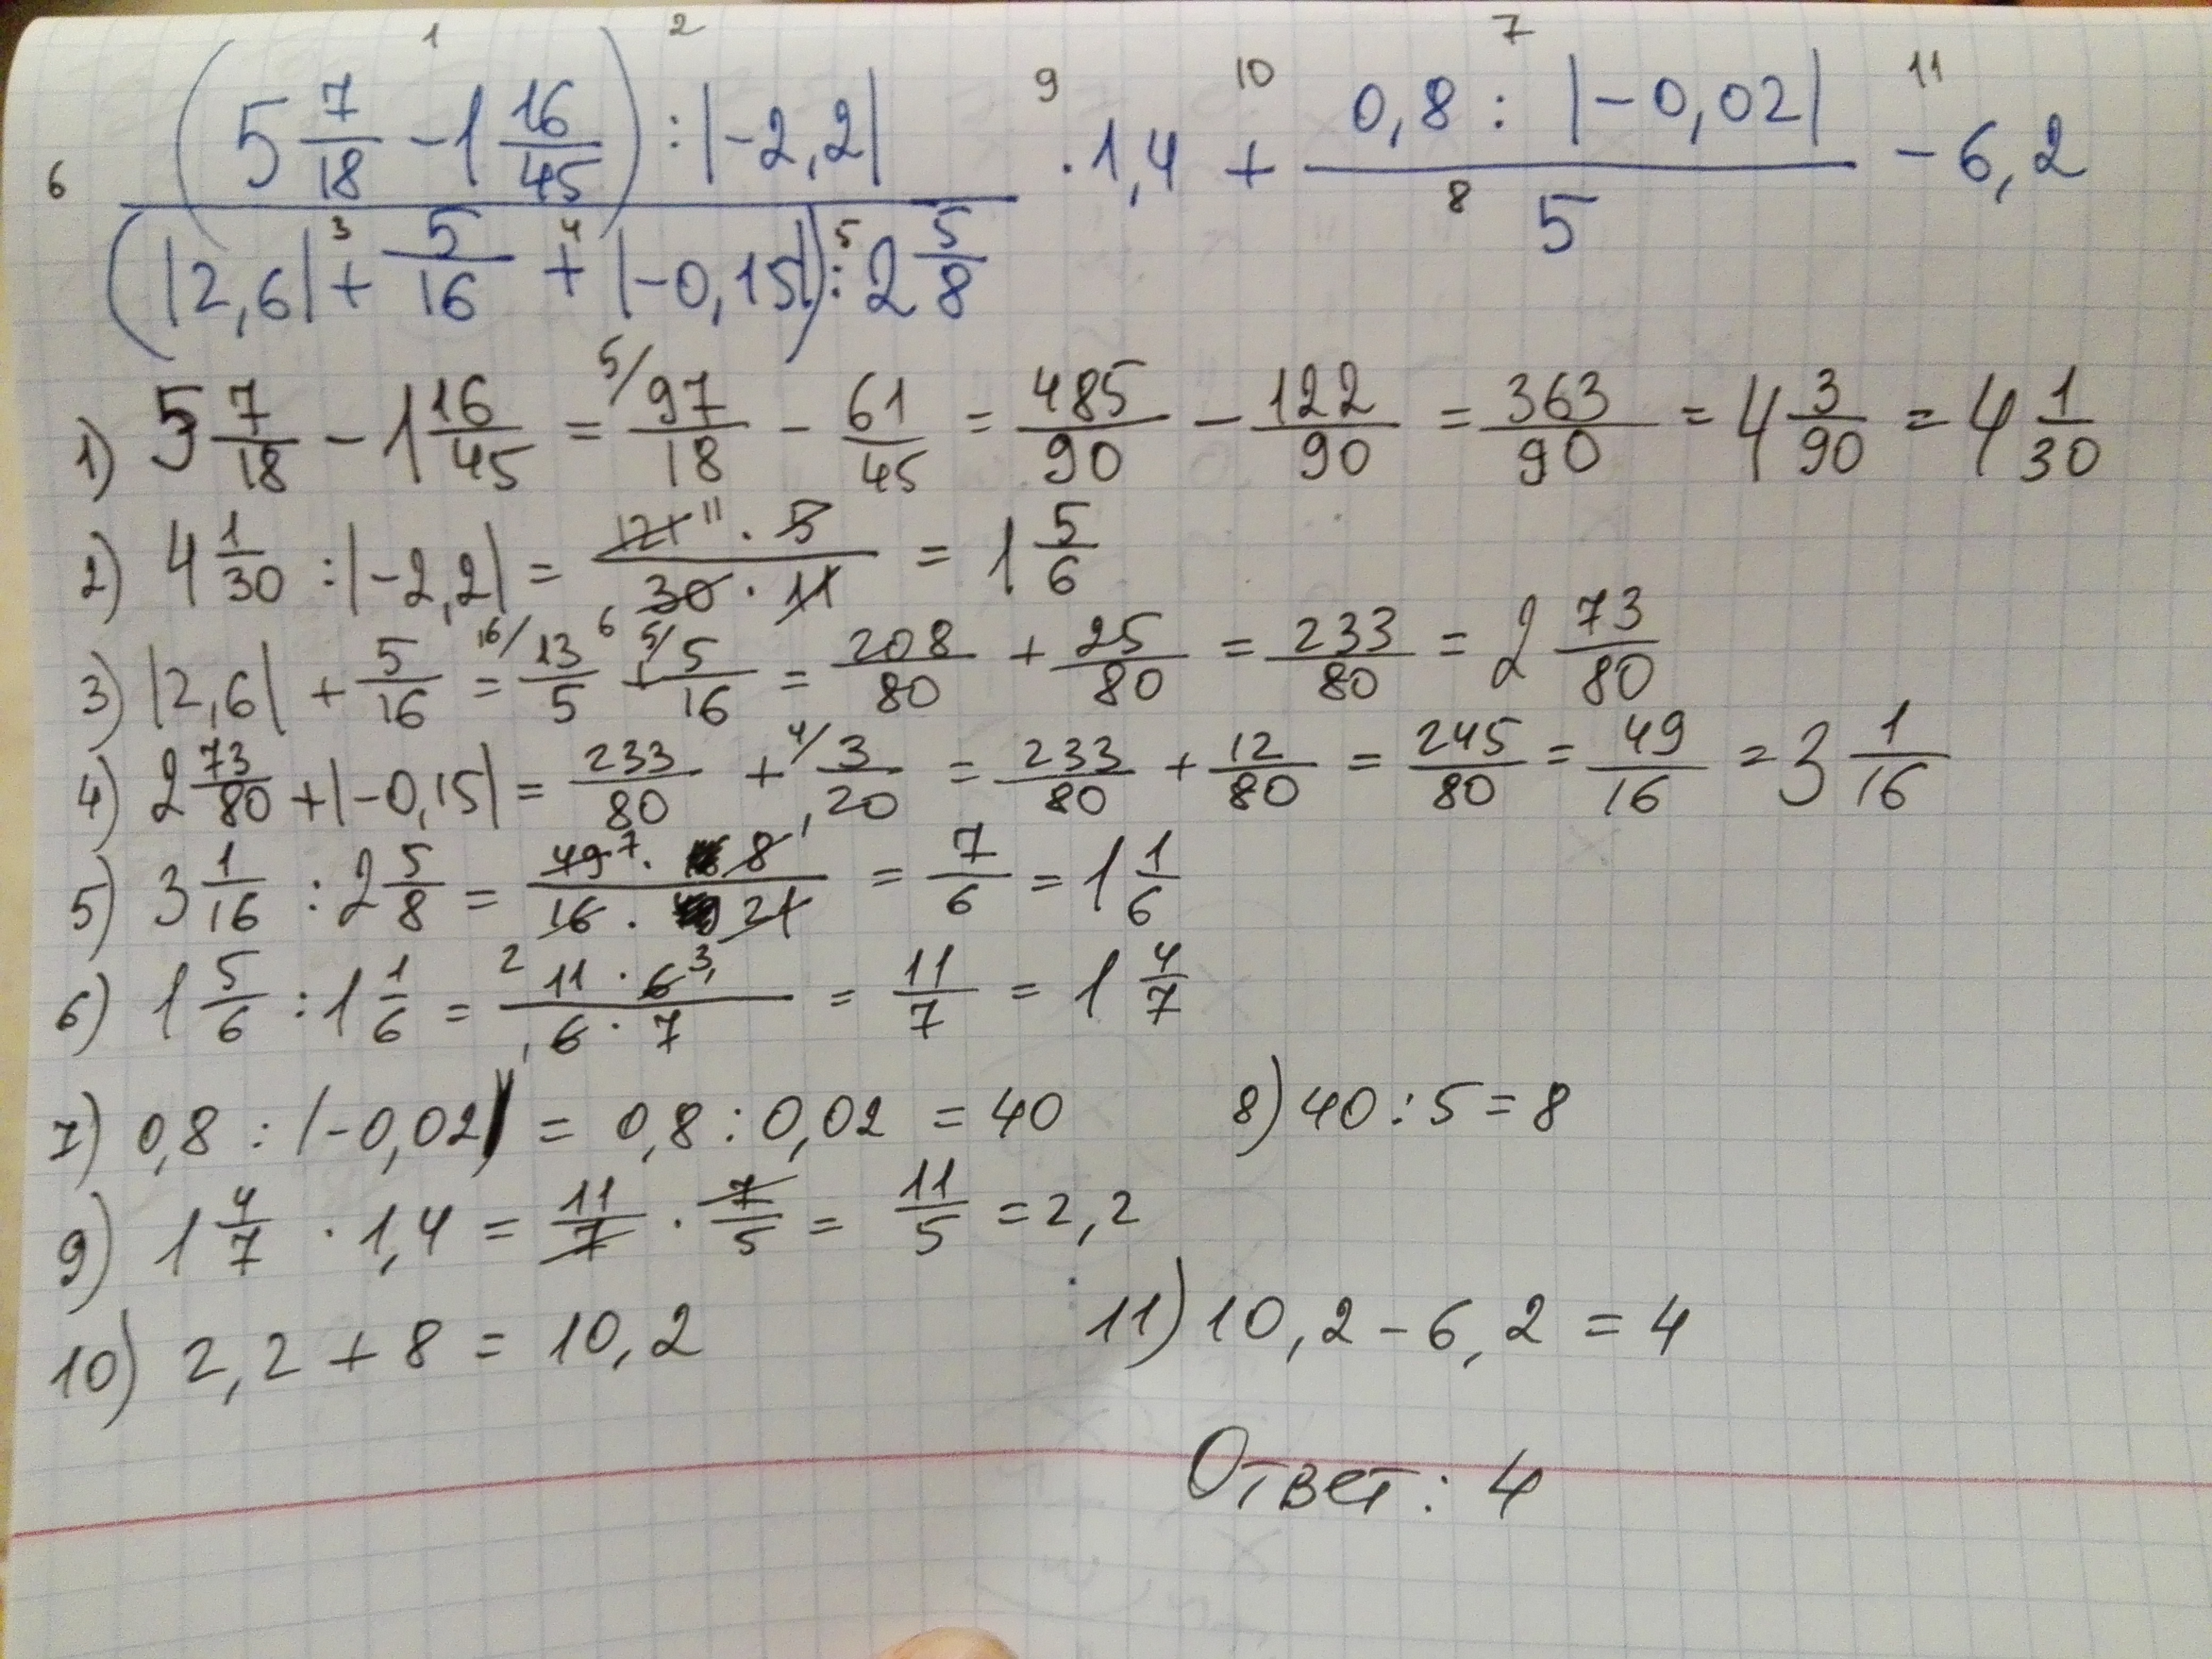 1 2 7
9 10 11
(5 7/18 - 1 16/45) : |-2,2| · 1,4 + 0,8 : |-0,02| - 6,2
6 8 5
3 4 5
(|2,6| + 5/16 + |-0,15|) : 2 5/8
1) 5 7/18 - 1 16/45 = 5/ 97/18 - 61/45 = 485/90 - 122/90 = 363/90 = 4 3/90 = 4 1/30
2) 4 1/30 : |-2,2| = 121 11 · 5 / 6 30 · 11 = 1 5/6
3) |2,6| + 5/16 = 16/ 13/5 + 5/ 5/16 = 208/80 + 25/80 = 233/80 = 2 73/80
4) 2 73/80 + |-0,15| = 233/80 + 4/ 3/20 = 233/80 + 12/80 = 245/80 = 49/16 = 3 1/16
5) 3 1/16 : 2 5/8 = 49 7 · 8 1 / 2 16 · 21 3 = 7/6 = 1 1/6
6) 1 5/6 : 1 1/6 = 11 · 6 1 / 1 6 · 7 = 11/7 = 1 4/7
7) 0,8 : |-0,02| = 0,8 : 0,02 = 40 8) 40 : 5 = 8
9) 1 4/7 · 1,4 = 11/7 · 7/5 = 11/5 = 2,2
10) 2,2 + 8 = 10,2 11) 10,2 - 6,2 = 4
Ответ: 4